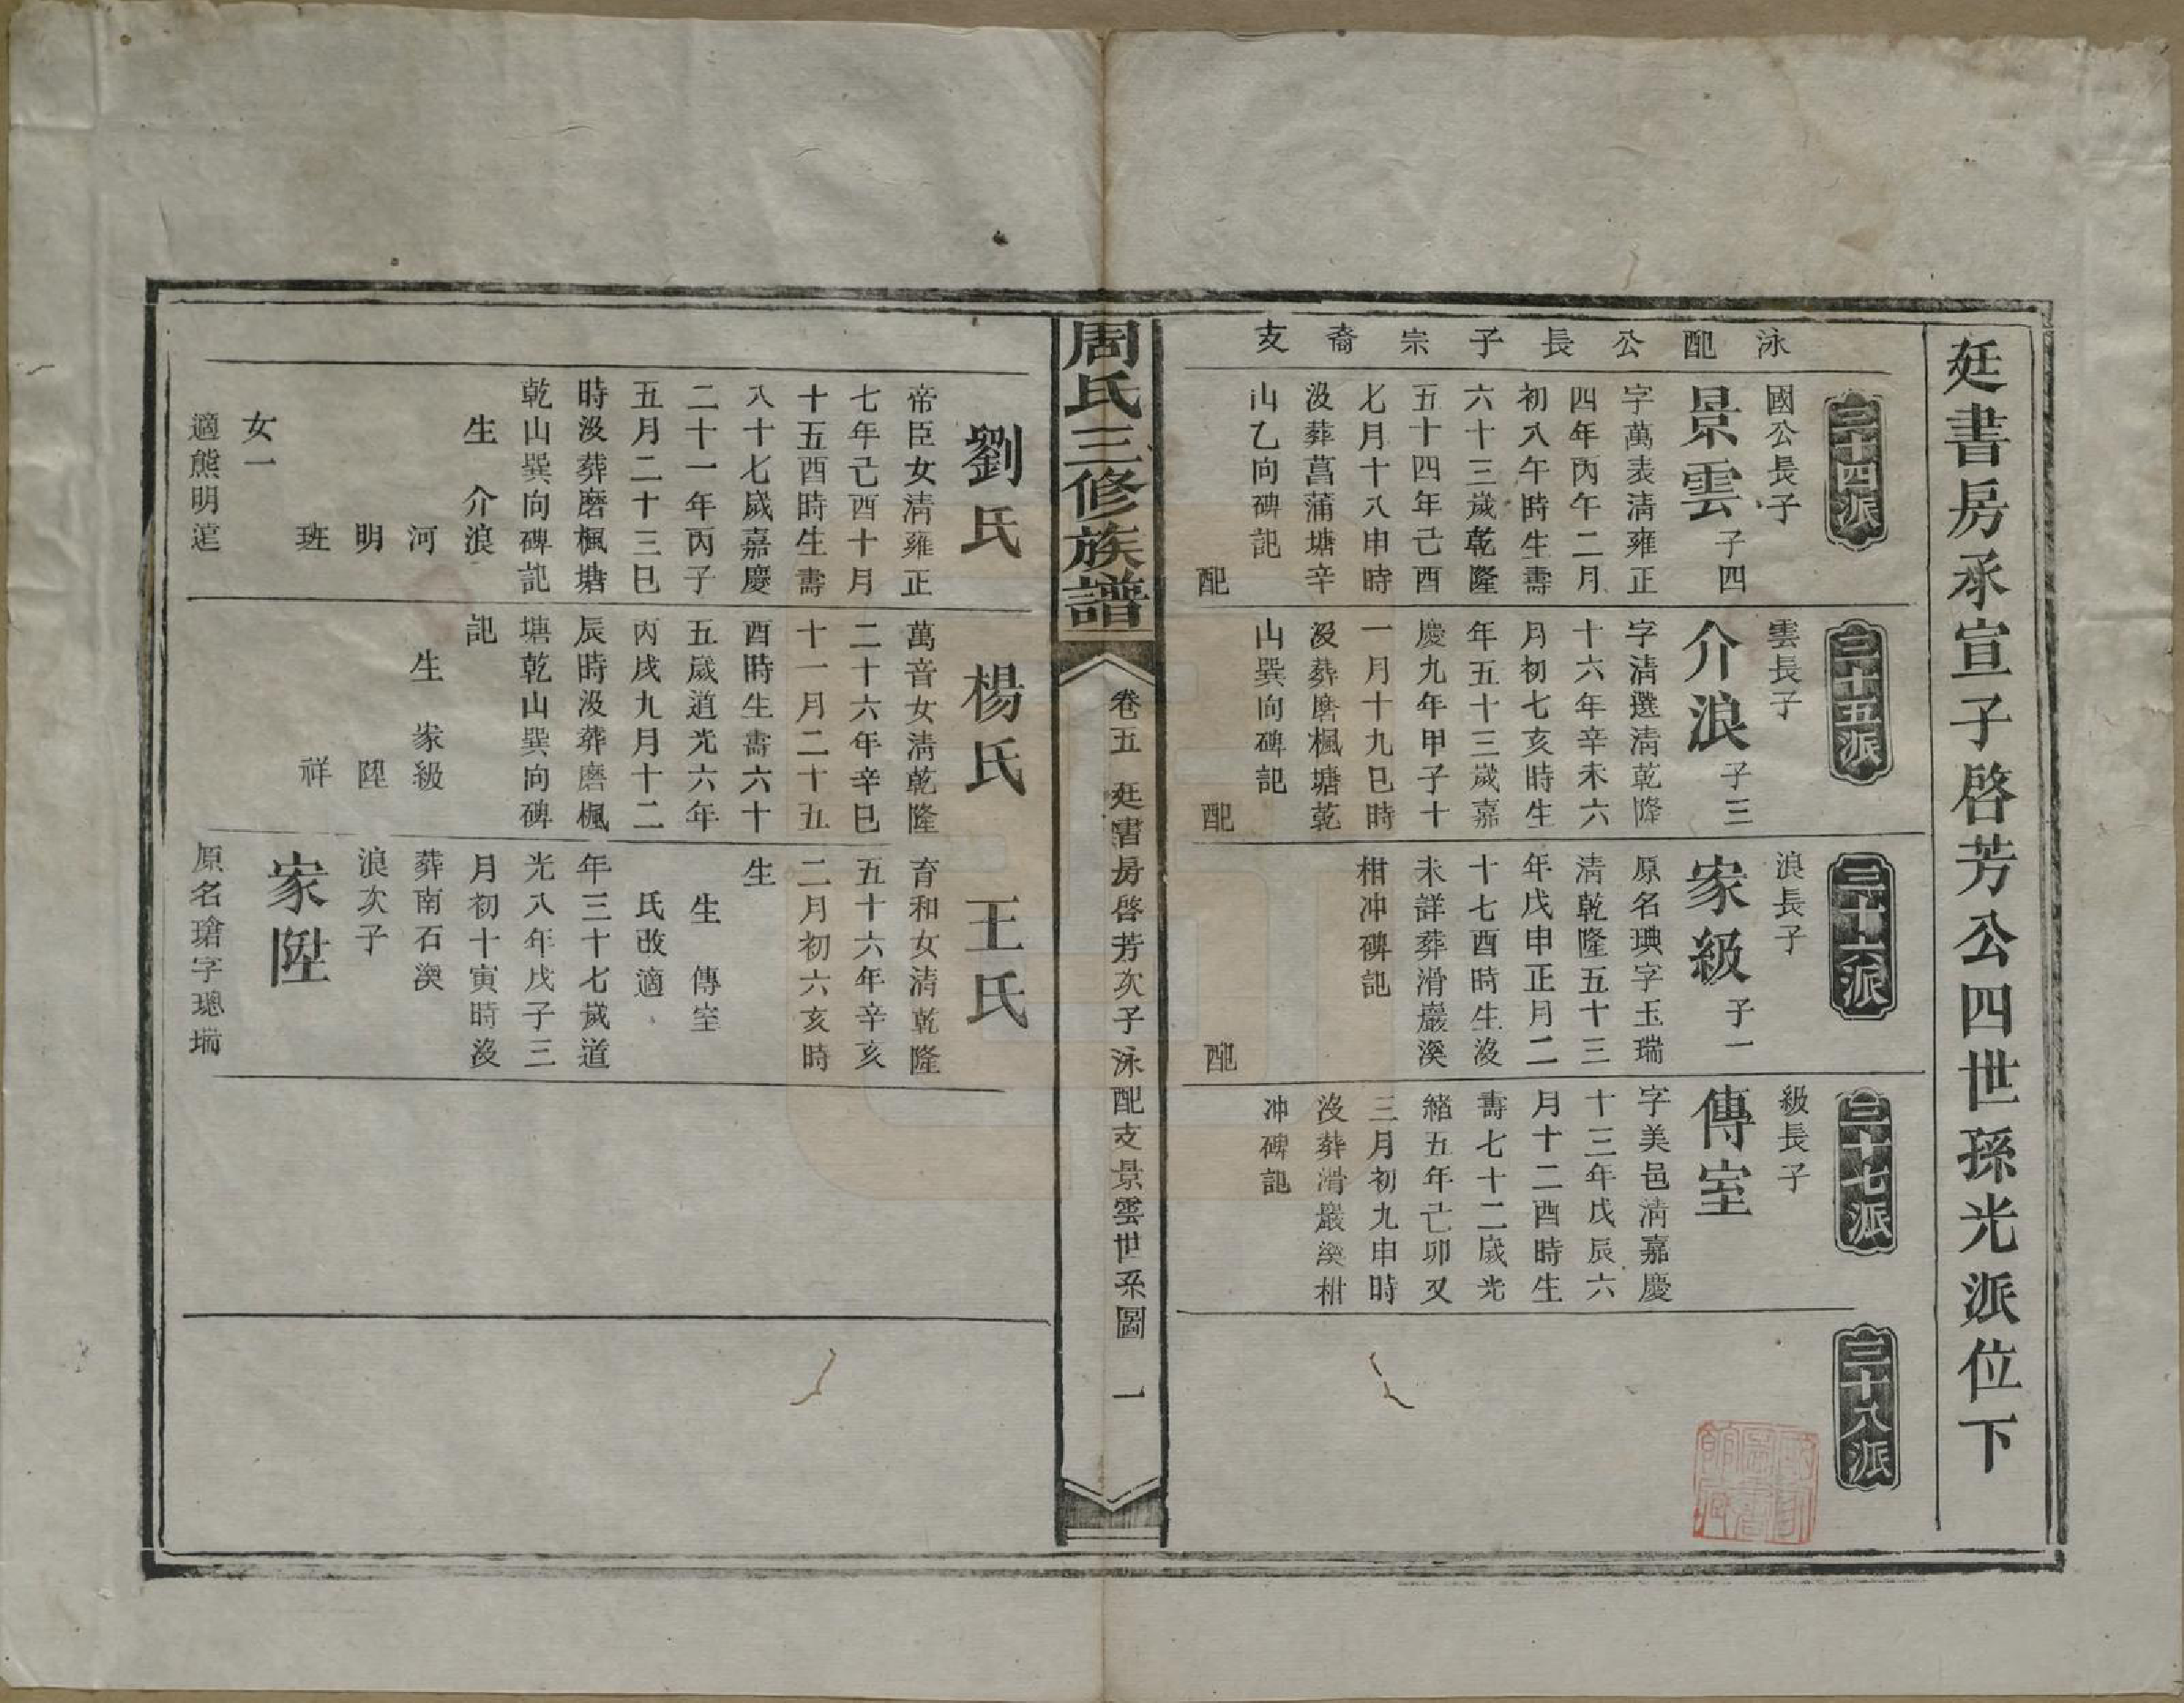 廷書房承宣子啓芳公四世孫光派位下
泳配公長子宗裔支
三十四派
國公長子
景雲
子四
字萬表淸雍正
四年丙午二月
初八午時生壽
六十三歲乾隆
五十四年己酉
七月十八申時
沒葬菖蒲塘辛
山乙向碑記
配
三十五派
雲長子
介浪
子三
字淸選淸乾隆
十六年辛未六
月初七亥時生
年五十三歲嘉
慶九年甲子十
一月十九巳時
沒葬磨楓塘乾
山巽向碑記
配
三十六派
浪長子
家級
子一
原名琠字玉瑞
淸乾隆五十三
年戊申正月二
十七酉時生沒
未詳葬滑巖溪
柑冲碑記
配
三十七派
級長子
傳室
字美邑淸嘉慶
十三年戊辰六
月十二酉時生
壽七十二歲光
緖五年己卯又
三月初九申時
沒葬滑巖溪柑
冲碑記
三十八派
周氏三修族譜
卷五 廷書房啓芳次子泳配支景雲世系圖 一
劉氏
帝臣女淸雍正
七年己酉十月
十五酉時生壽
八十七歲嘉慶
二十一年丙子
五月二十三巳
時沒葬磨楓塘
乾山巽向碑記
生 介浪
河
明
班
女一
適熊明逵
楊氏
萬音女淸乾隆
二十六年辛巳
十一月二十五
酉時生壽六十
五歲道光六年
丙戌九月十二
辰時沒葬磨楓
塘乾山巽向碑
記
生 家級
陞
祥
王氏
育和女淸乾隆
五十六年辛亥
二月初六亥時
生
生 傳室
氏改適
年三十七歲道
光八年戊子三
月初十寅時沒
葬南石澳
浪次子
家陞
原名瑲字璁瑞